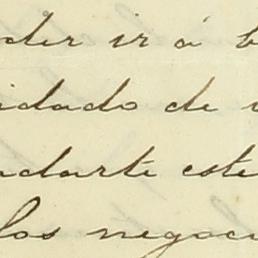 der ir á b
idado de v
ndarte este
los negoci